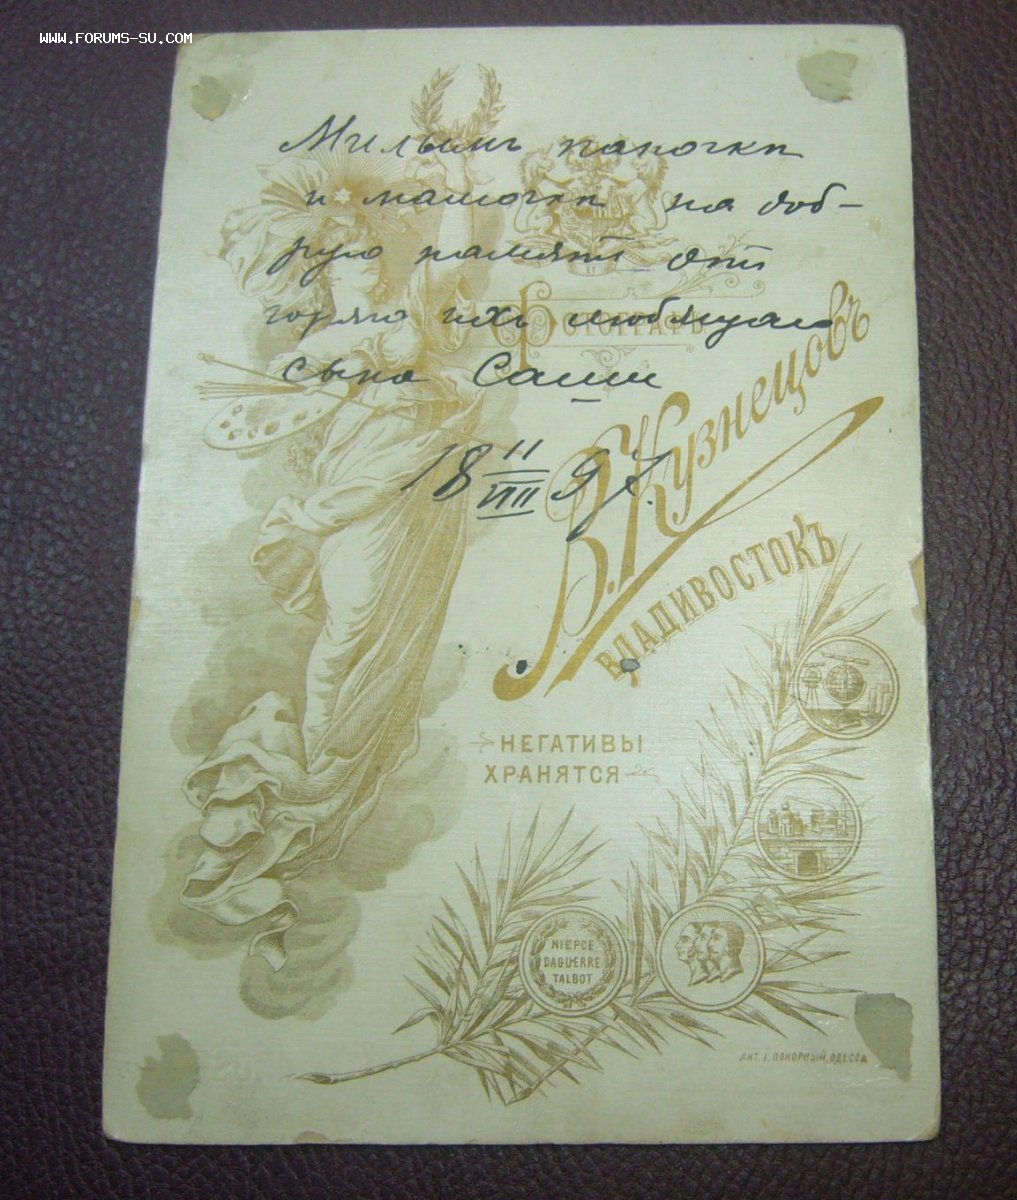 WWW.FORUMS-SU.COM
Милымъ папочкѣ
и мамочкѣ на доб-
рую память отъ
горячо ихъ любящаго
сына Саши
18 II/VIII 97.
ФОТОГРАФЪ
В. Кузнецовъ
ВЛАДИВОСТОКЪ
НЕГАТИВЫ
ХРАНЯТСЯ
NIEPCE
DAGUERRE
TALBOT
ЛИТ. І. ПОКОРНЫЙ, ОДЕССА